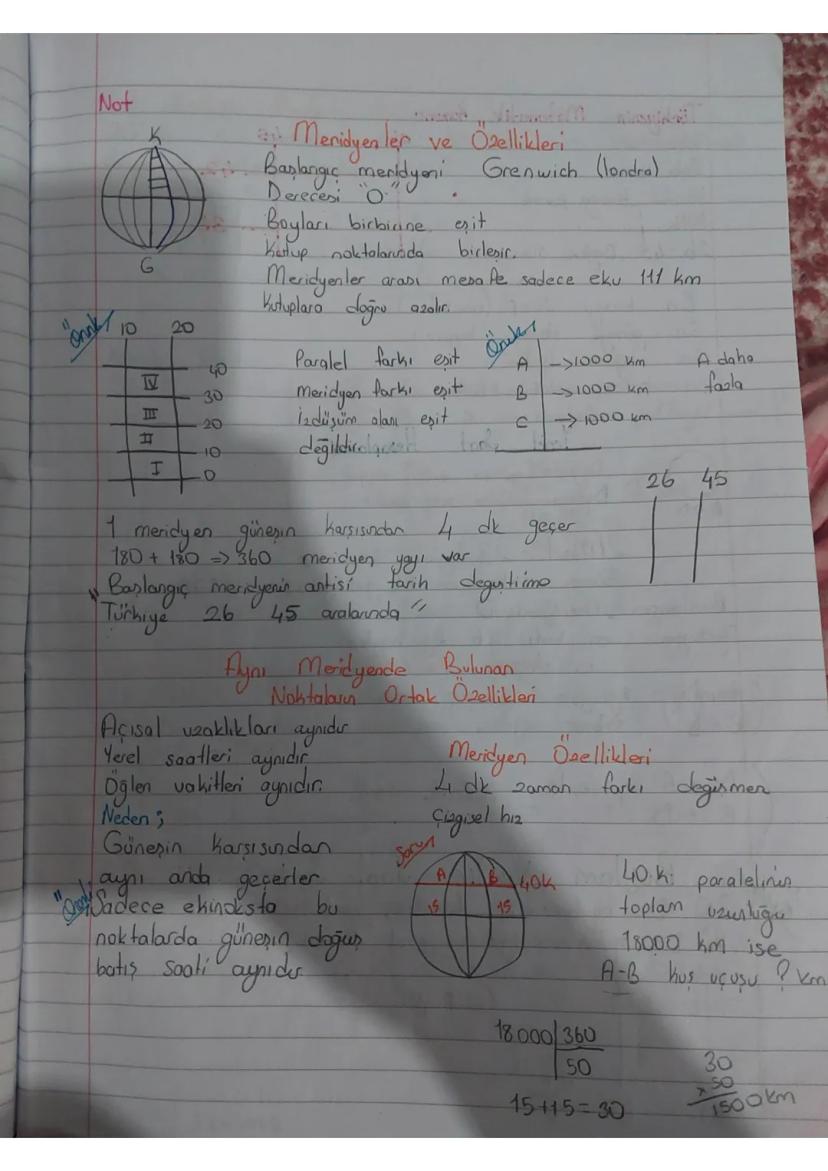 Not
Meridyenler ve Özellikleri
K
G
Başlangıç meridyeni Grenwich (londra)
Derecesi "0"
Boyları birbirine eşit
Kutup noktalarında birleşir.
Meridyenler arası mesafe sadece eku 111 km
kutuplara doğru azalır.
Örnek
10 20
40
30
20
10
0
IV
III
II
I
Paralel farkı eşit
meridyen farkı eşit
İzdüşüm alanı eşit
değildir.
Örnek
A ->1000 km
B ->1000 km
C -> 1000 km
A daha
fazla
26 45
1 meridyen güneşin karşısından 4 dk geçer
180 + 180 => 360 meridyen yayı var
"Başlangıç meridyenin antisi tarih değiştirme
Türkiye 26 45 aralarında"
Aynı Meridyende Bulunan
Noktaların Ortak Özellikleri
Açısal uzaklıkları aynıdır
Yerel saatleri aynıdır
Öğlen vakitleri aynıdır.
Neden;
Güneşin karşısından
aynı anda geçerler
Sadece ekinoksta bu
noktalarda güneşin doğuş
batış saati aynıdır
Meridyen Özellikleri
4 dk zaman farkı değişmez
Çizgisel hız
Soru
A B 40K
15 15
40.K. paralelinin
toplam uzunluğu
18000 km ise
A-B kuş uçuşu ? km
18.000 360
50
15+15=30
30
x50
1500 km